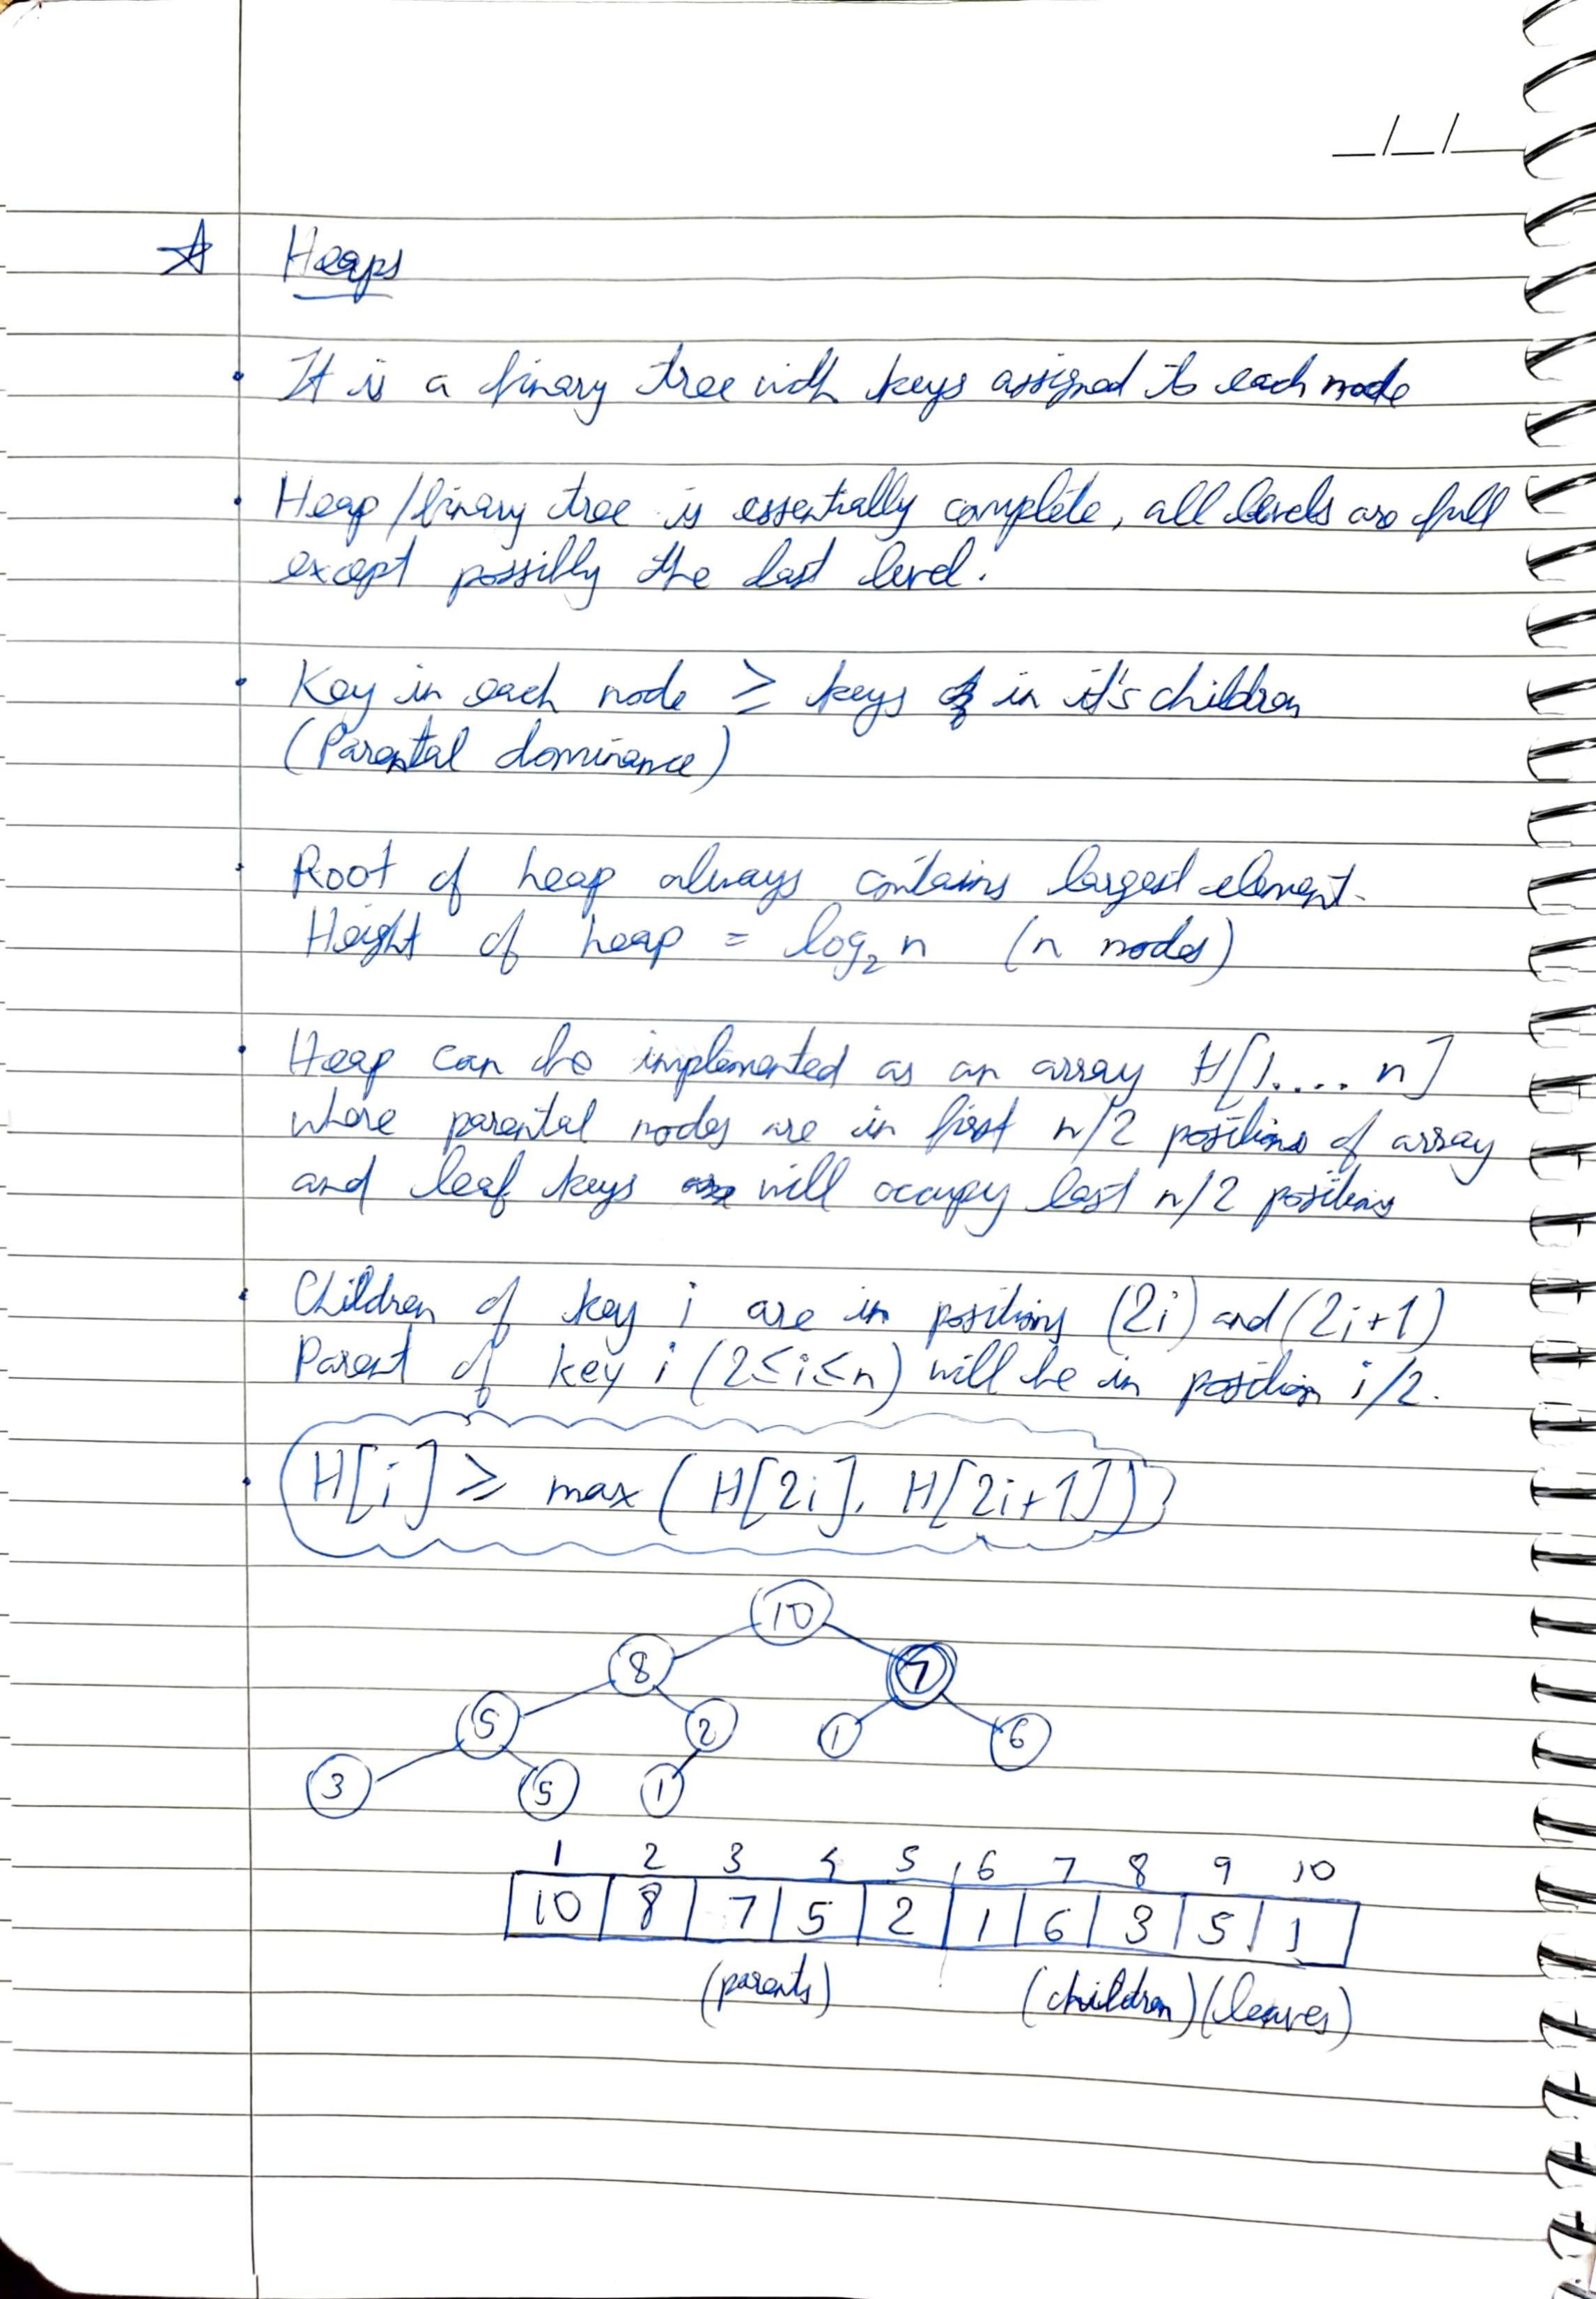 _/_/_
☆ Heaps
• It is a binary tree with keys assigned to each node
• Heap/binary tree is essentially complete, all levels are full
except possibly the last level.
• Key in each node ≥ keys in it's children
(Parental dominance)
• Root of heap always contains largest element.
Height of heap = log₂ n (n nodes)
• Heap can be implemented as an array H[1.... n]
where parental nodes are in first n/2 positions of array
and leaf keys will occupy last n/2 positions
• Children of key i are in positions (2i) and (2i+1)
Parent of key i (2≤i≤n) will be in position i/2.
• H[i] ≥ max(H[2i], H[2i+1])
10
8 7
5 2 1 6
3 5 1
1 2 3 4 5 6 7 8 9 10
10 8 7 5 2 1 6 3 5 1
(parents) (children) (leaves)